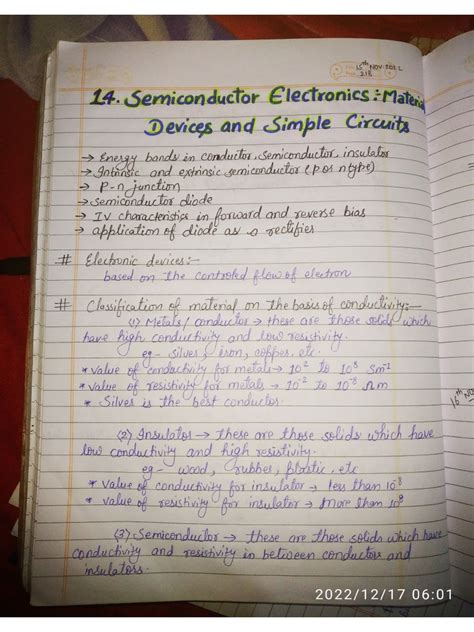 15th NOV 2022
218
14. Semiconductor Electronics: Material
Devices and Simple Circuits
→ Energy bands in conductor, semiconductor, insulator
→ Intrinsic and extrinsic semiconductor (p or n type)
→ P-n junction
→ semiconductor diode
→ IV characteristics in forward and reverse bias
→ application of diode as a rectifier
# Electronic devices:-
based on the controled flow of electron
# Classification of material on the basis of conductivity:-
(1) Metals/conductor → these are those solids which
have high conductivity and low resistivity.
eg- silver, iron, copper, etc.
* value of conductivity for metals → 10² to 10⁸ Sm⁻¹
* value of resistivity for metals → 10⁻² to 10⁻⁸ Ωm
* Silver is the best conductor.
(2) Insulator → these are those solids which have
low conductivity and high resistivity.
eg - wood, rubber, plastic, etc
* value of conductivity for insulator → less than 10⁻⁸
* value of resistivity for insulator → more than 10⁸
(3) Semiconductor → these are those solids which have
conductivity and resistivity in between conductors and
insulators.
2022/12/17 06:01